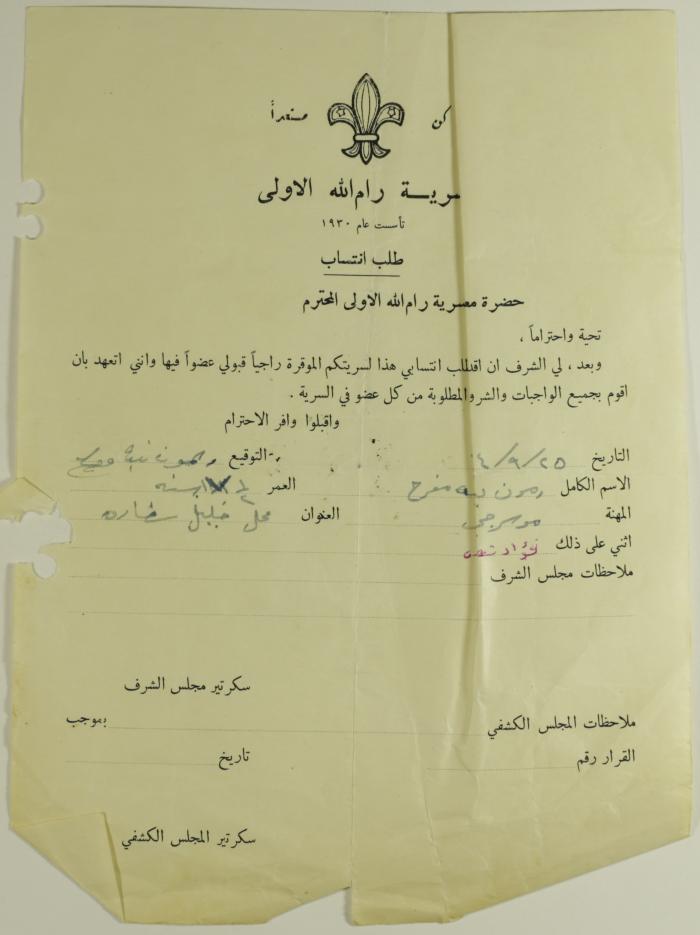 كن مستعداً
سرية رام الله الاولى
تأسست عام ١٩٣٠
طلب انتساب
حضرة سرية رام الله الاولى المحترم
تحية واحتراماً ،
وبعد ، لي الشرف ان اقدم طلب انتسابي هذا لسريتكم الموقرة راجياً قبولي عضواً فيها وانني اتعهد بان
اقوم بجميع الواجبات والشروط المطلوبة من كل عضو في السرية .
واقبلوا وافر الاحترام
التاريخ ٢٥/٩/٤ التوقيع
الاسم الكامل العمر سنه
المهنة موسرجي العنوان محل خليل
اثني على ذلك فؤاد
ملاحظات مجلس الشرف
سكرتير مجلس الشرف
ملاحظات المجلس الكشفي بموجب
القرار رقم تاريخ
سكرتير المجلس الكشفي